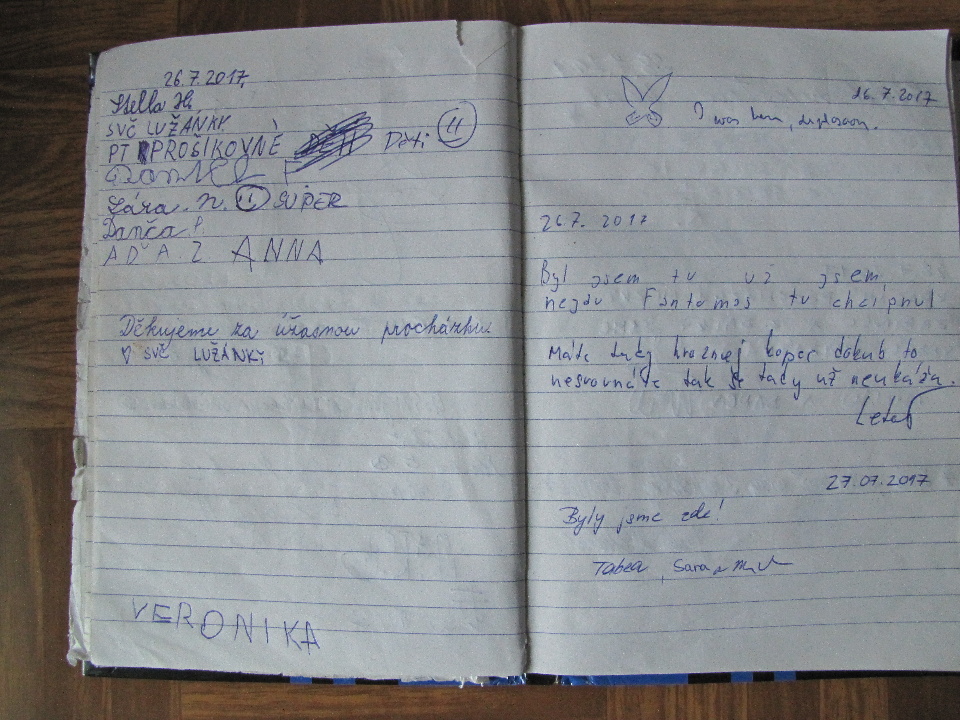 26.7.2017
Stella H.
SVČ LUŽÁNKY
PT PROŠIKOVNÉ Děti 11
Sára. N. 11 SUPER
Danča P.
AĎA Z ANNA
Děkujeme za úžasnou procházku.
♡ SVČ LUŽÁNKY
VERONIKA
26.7.2017
I was here,
26.7. 2017
Byl jsem tu už jsem,
nejdu Fantomas tu chcípnul
Máte tady hroznej kopec dokub to
nesrovnáte tak se tady už neukážu.
27.07.2017
Byly jsme zde!
Tabea, Sara